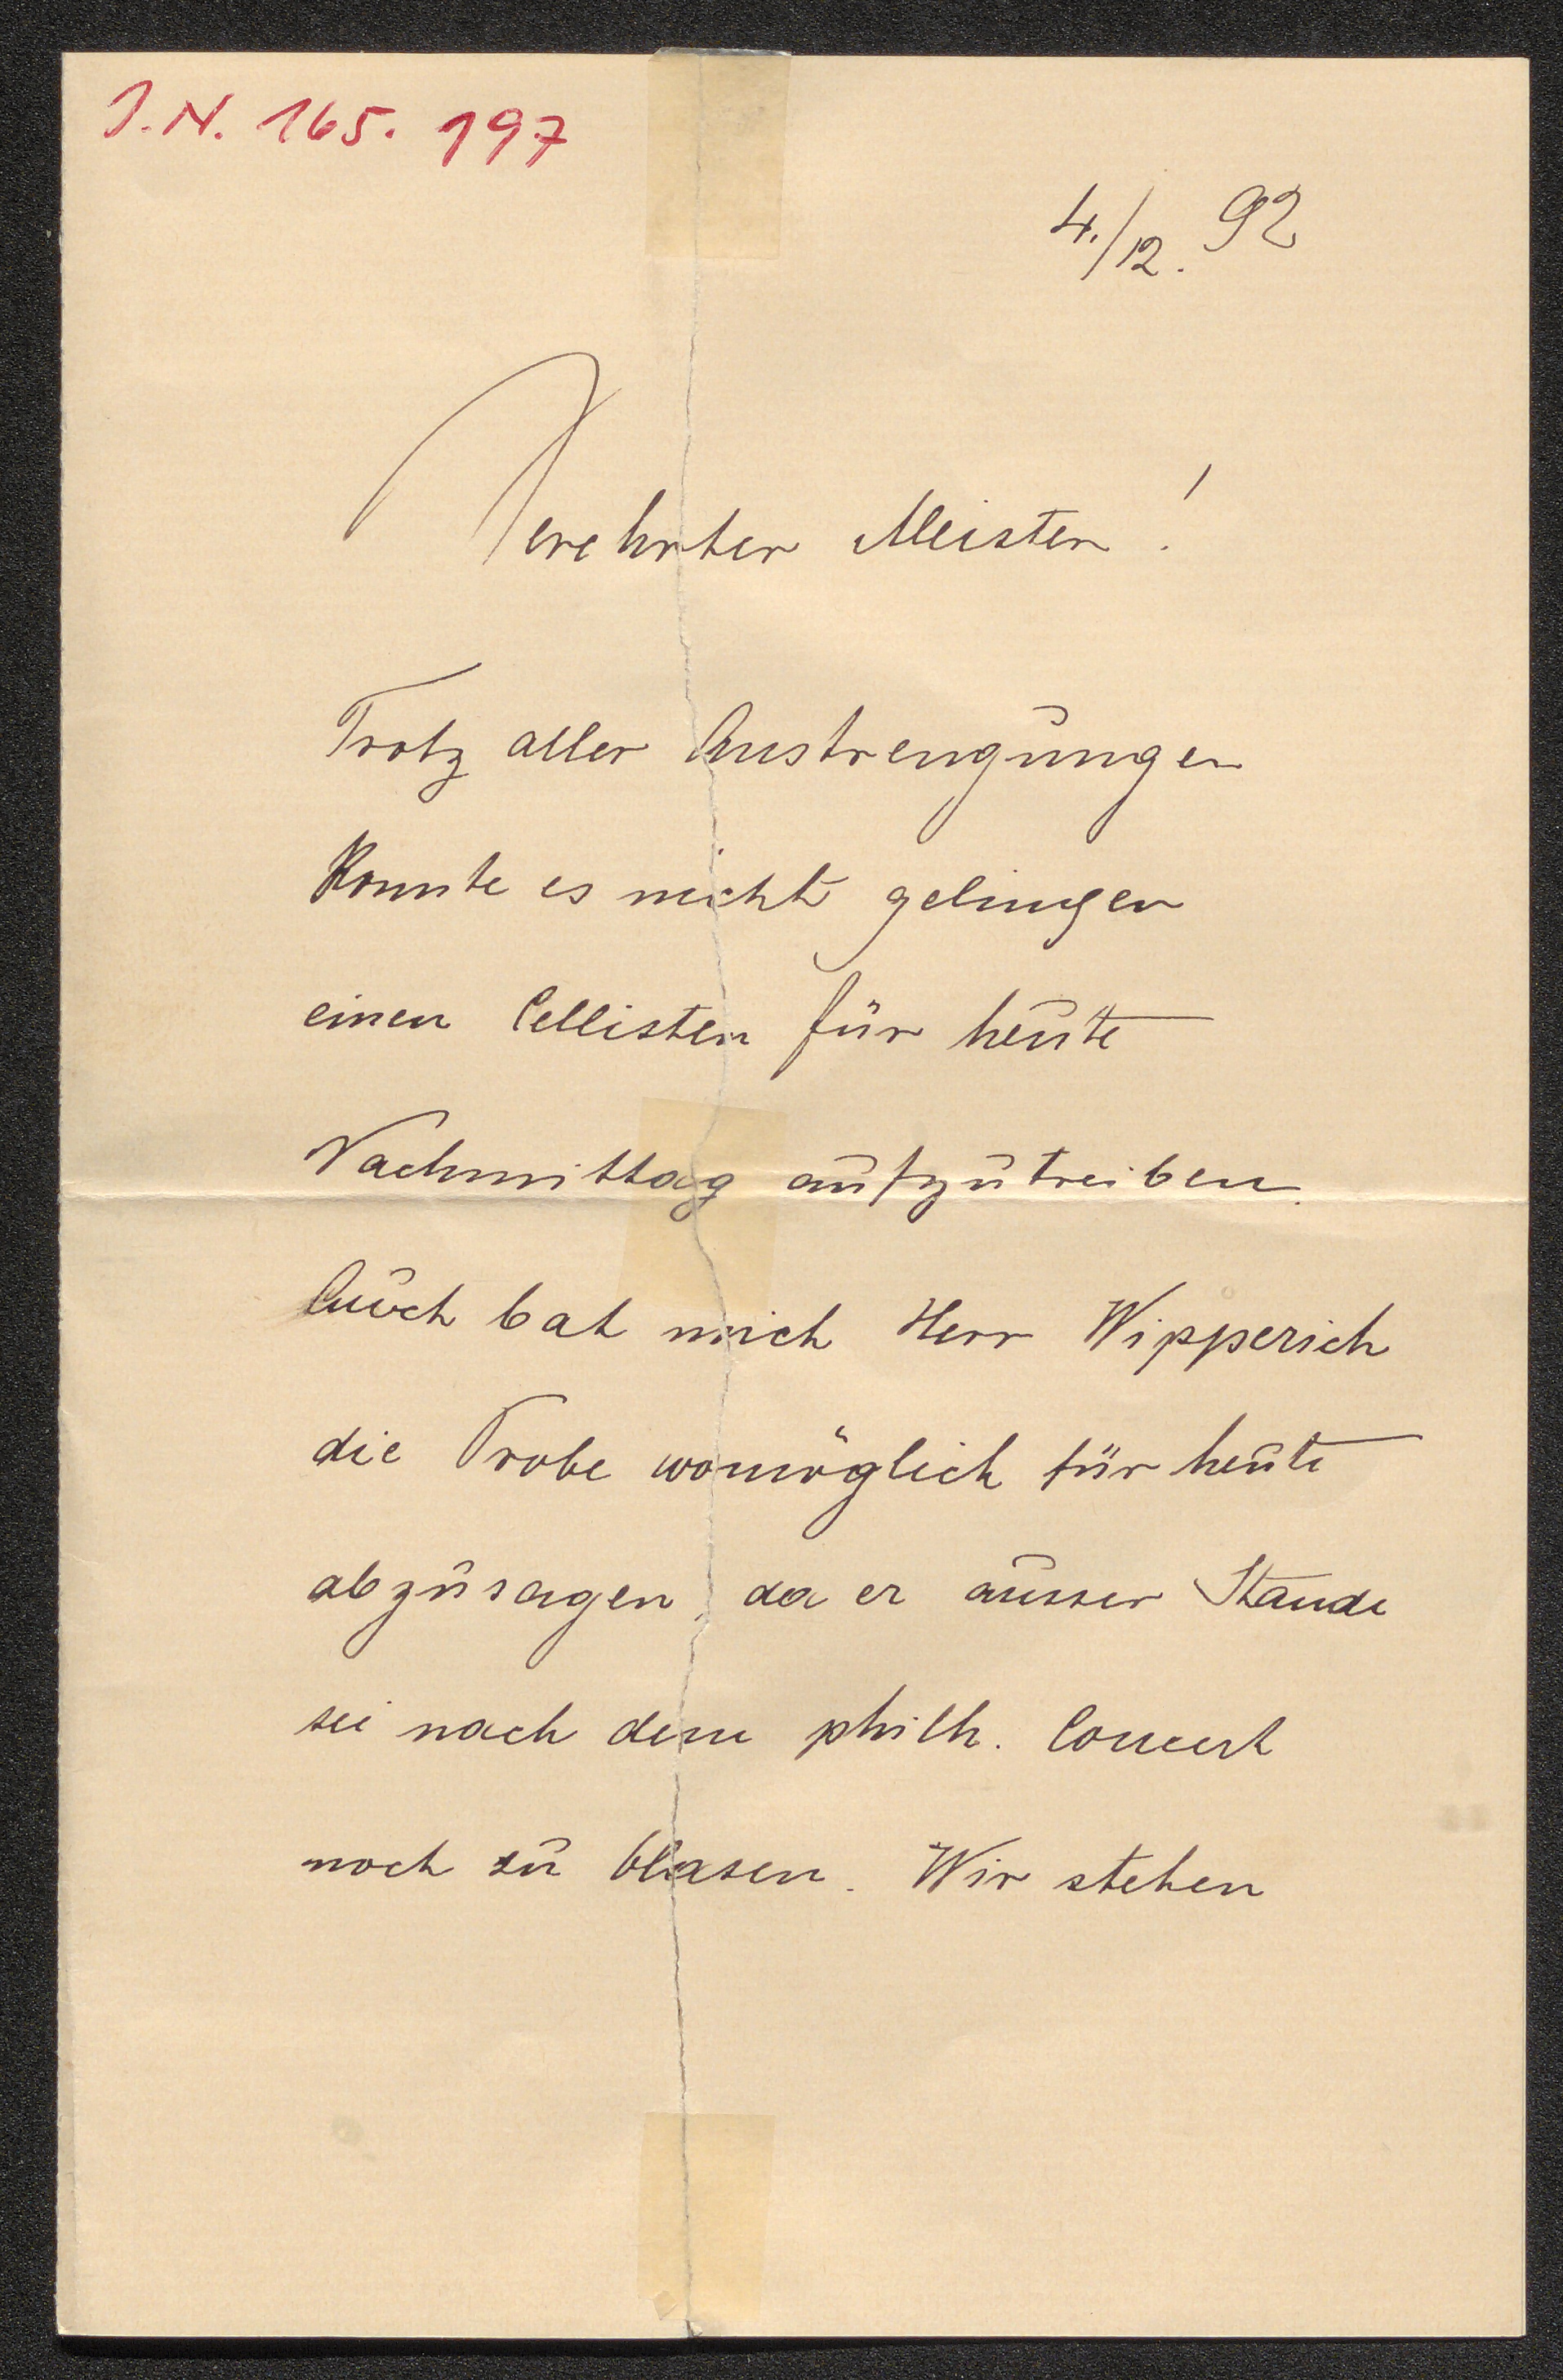 J.N. 165.197
4./12. 92
Verehrter Meister!
Trotz aller Anstrengungen
konnte es nicht gelingen
einen Cellisten für heute
Nachmittag aufzutreiben.
Auch bat mich Herr Wipperich
die Probe womöglich für heute
abzusagen, da er ausser Stande
sei nach dem philh. Concert
noch zu blasen. Wir stehen